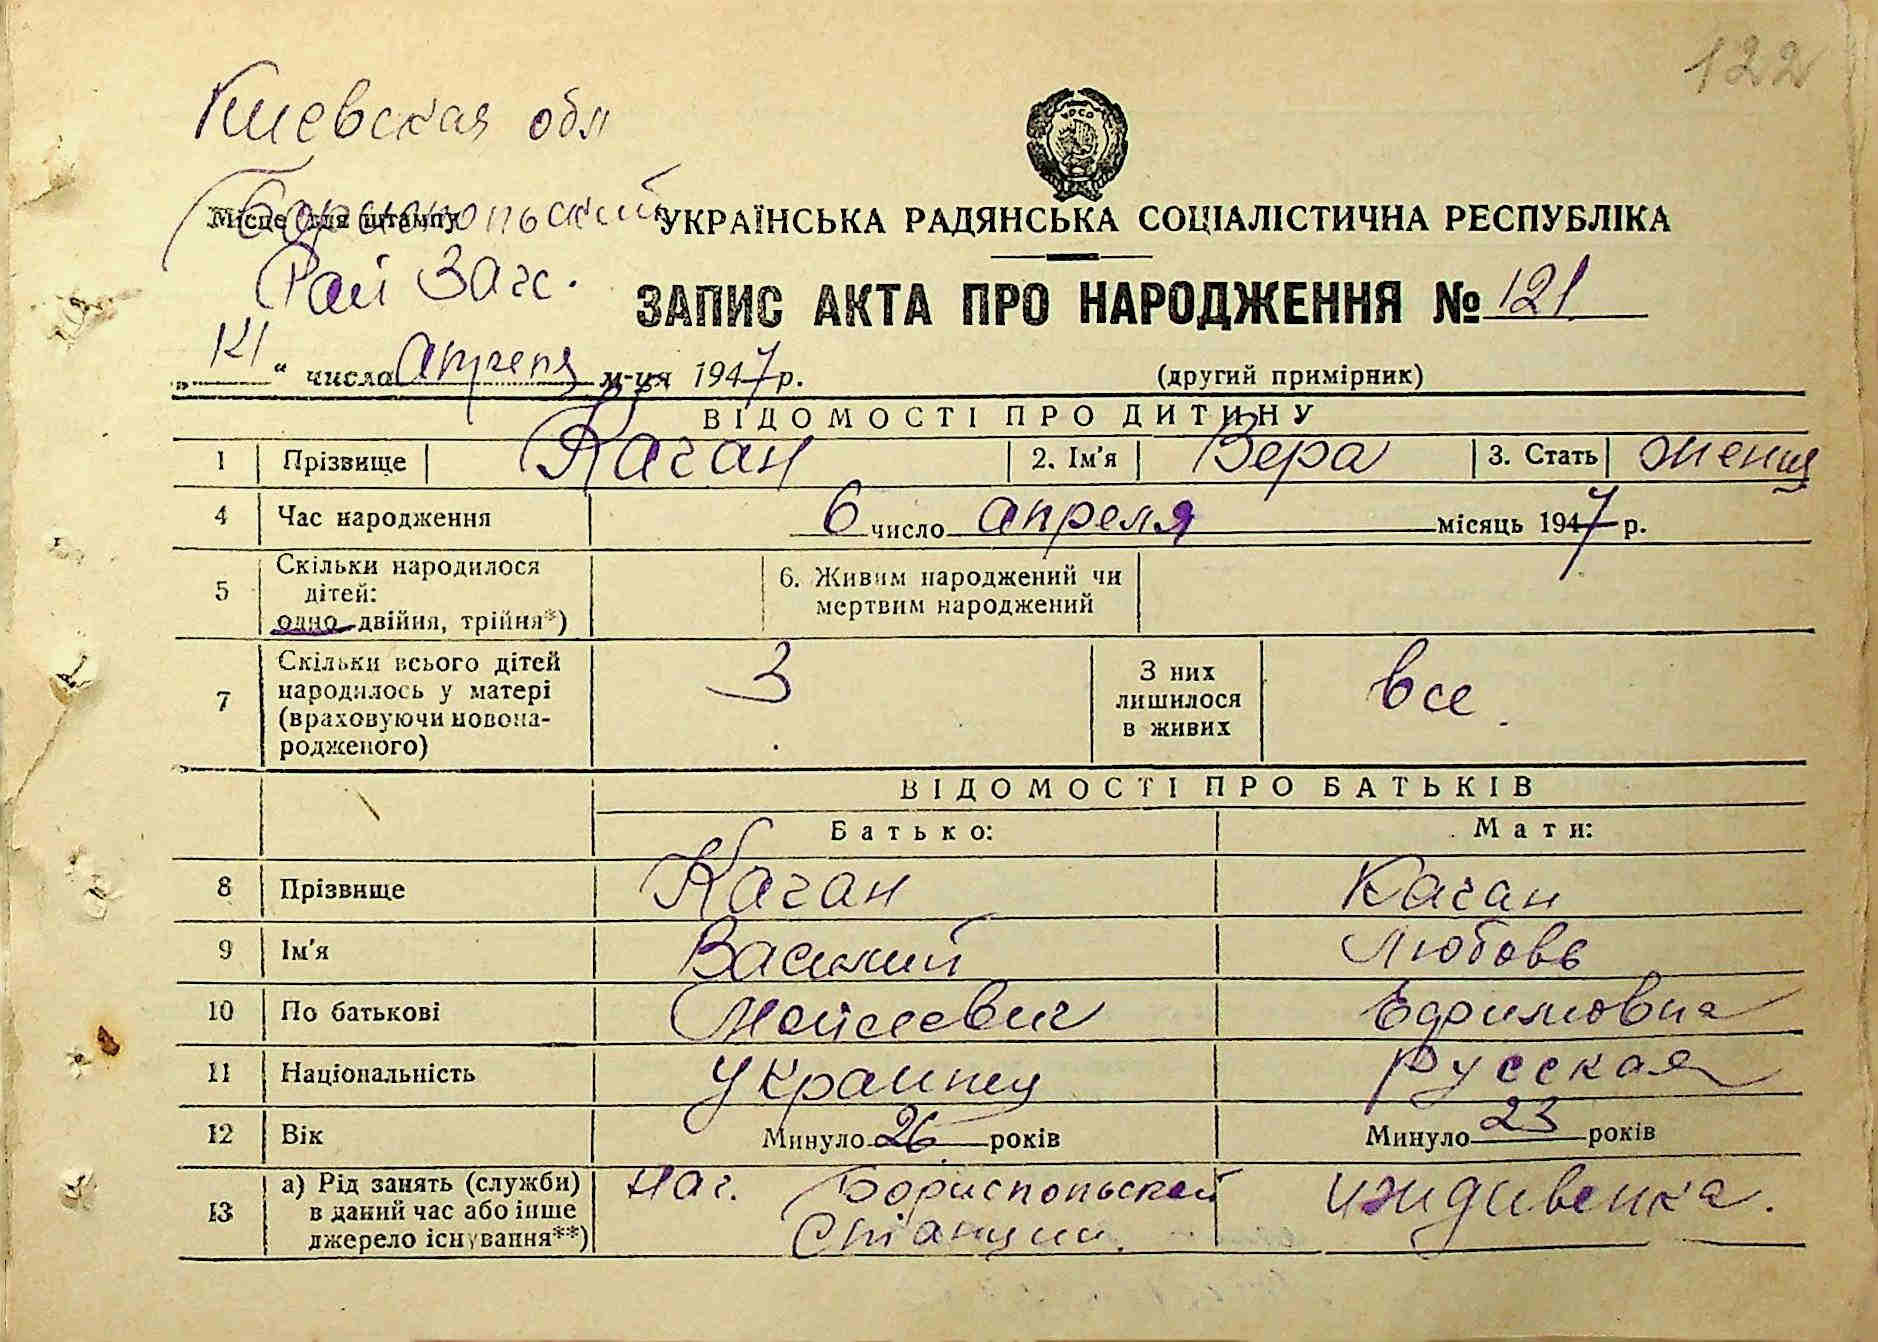 122
Киевская обл
Місце для штампу
Бориспольский
УРСР
УКРАЇНСЬКА РАДЯНСЬКА СОЦІАЛІСТИЧНА РЕСПУБЛІКА
Рай Загс.
ЗАПИС АКТА ПРО НАРОДЖЕННЯ № 121
„ 14 “ числа апреля м-ця 1947 р. (другий примірник)
ВІДОМОСТІ ПРО ДИТИНУ
1 Прізвище Каган 2. Ім'я Вера 3. Стать женщ
4 Час народження 6 число апреля місяць 1947 р.
5 Скільки народилося дітей: одно двійня, трійня*) 6. Живим народжений чи мертвим народжений
7 Скільки всього дітей народилось у матері (враховуючи новонародженого) 3 З них лишилося в живих все.
ВІДОМОСТІ ПРО БАТЬКІВ
Батько: Мати:
8 Прізвище Каган Каган
9 Ім'я Василий Любовь
10 По батькові Мойсеевич Ефимовна
11 Національність украинец Русская
12 Вік Минуло 26 років Минуло 23 років
13 а) Рід занять (служби) в даний час або інше джерело існування**) Нач. Бориспольской Станции. иждивенка.